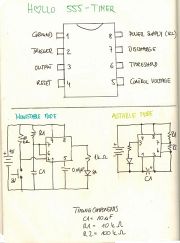 HELLO 555-TIMER
GROUND 1
8 POWER SUPPLY (VCC)
TRIGGER 2
7 DISCHARGE
OUTPUT 3
6 THRESHOLD
RESET 4
5 CONTROL VOLTAGE
MONOSTABLE MODE
ASTABLE MODE
TIMING COMPONENTS
C1 = 10uF
R1 = 10kΩ
R2 = 100kΩ